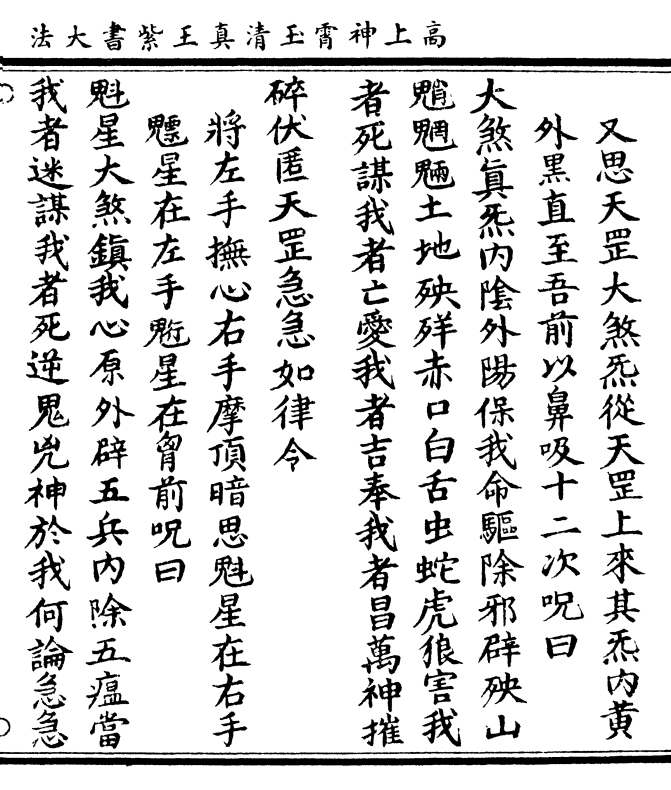 高上神霄玉清真王紫書大法
又思天罡大煞炁從天罡上來其炁内黄
外黑直至吾前以鼻吸十二次呪曰
大煞真炁内陰外陽保我命驅除邪辟殃山
魈魍魎土地殃殍赤口白舌虫蛇虎狼害我
者死謀我者亡愛我者吉奉我者昌萬神摧
碎伏匿天罡急急如律令
將左手撫心右手摩頂暗思魁星在右手
魒星在左手魓星在胷前呪曰
魁星大煞鎮我心原外辟五兵内除五瘟當
我者迷謀我者死逆鬼兇神於我何論急急